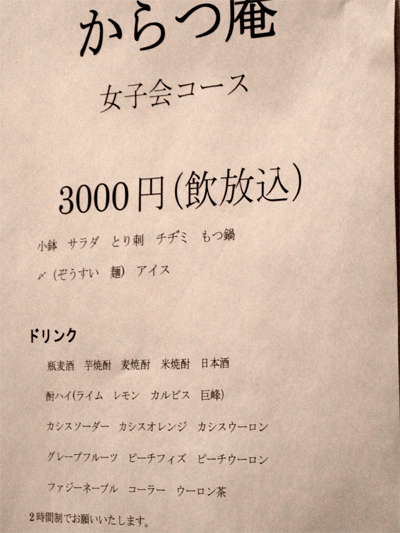 からつ庵
女子会コース
3000円(飲放込)
小鉢 サラダ とり刺 チヂミ もつ鍋
〆(ぞうすい 麺) アイス
ドリンク
瓶麦酒 芋焼酎 麦焼酎 米焼酎 日本酒
酎ハイ(ライム レモン カルピス 巨峰)
カシスソーダー カシスオレンジ カシスウーロン
グレープフルーツ ピーチフィズ ピーチウーロン
ファジーネーブル コーラー ウーロン茶
2時間制でお願いいたします。